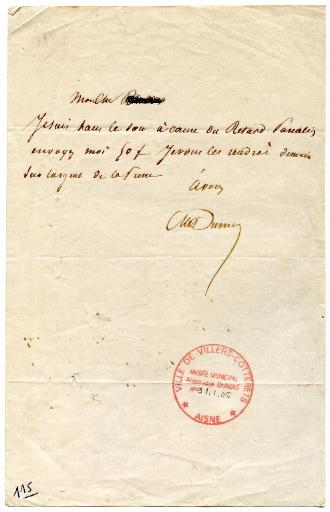 Mon cher
Je suis sans le sou à cause du Retard
envoyez moi 50 f Je vous les rendrai demain
sur l'argent de la
à vous
Alex Dumas
VILLE DE VILLERS-COTTERETS
MUSÉE MUNICIPAL
ALEXANDRE DUMAS
AISNE
115